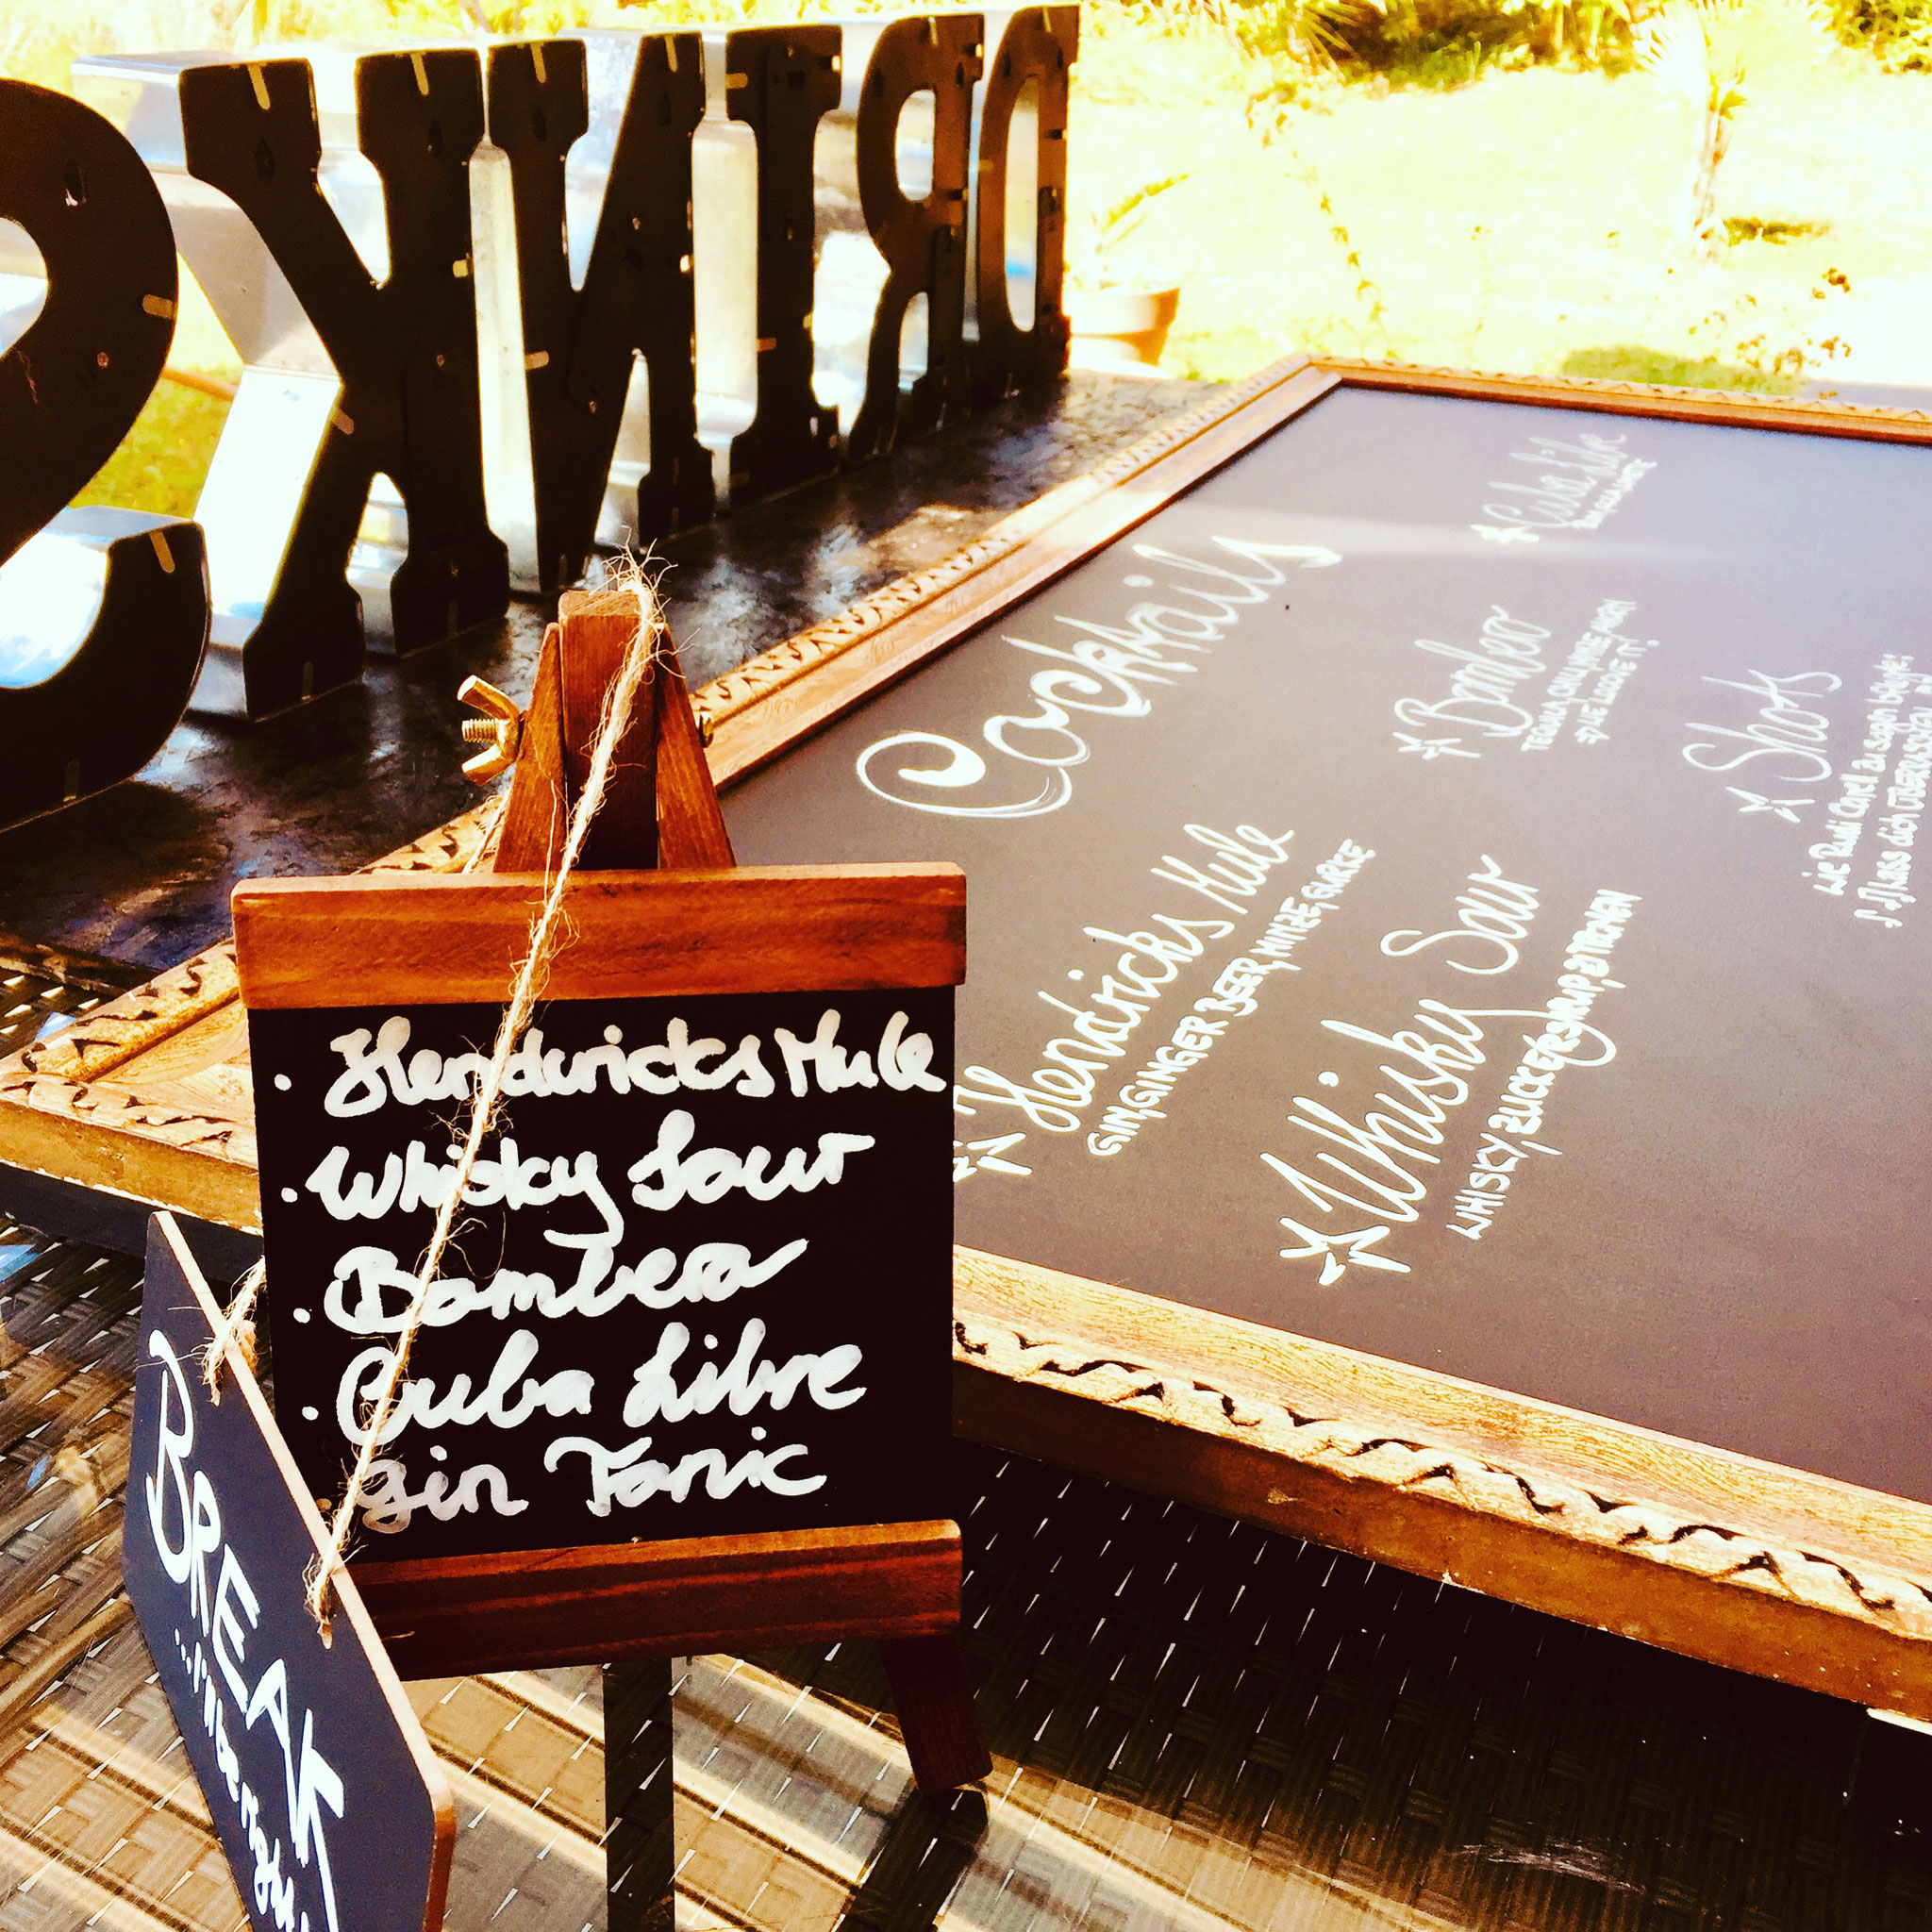 DRINKS
Cocktails
Hendricks Mule
GIN, GINGER BEER, MINZE, GURKE
Whisky Sour
WHISKY, ZUCKERSYRUP, ZITRONEN
Bambero
Shots
Wie Rudi Carell zu sagen
lass dich ÜBERRASCH
• Hendricks Mule
• Whisky Sour
• Bambera
• Cuba Libre
• Gin Tonic
BREAK